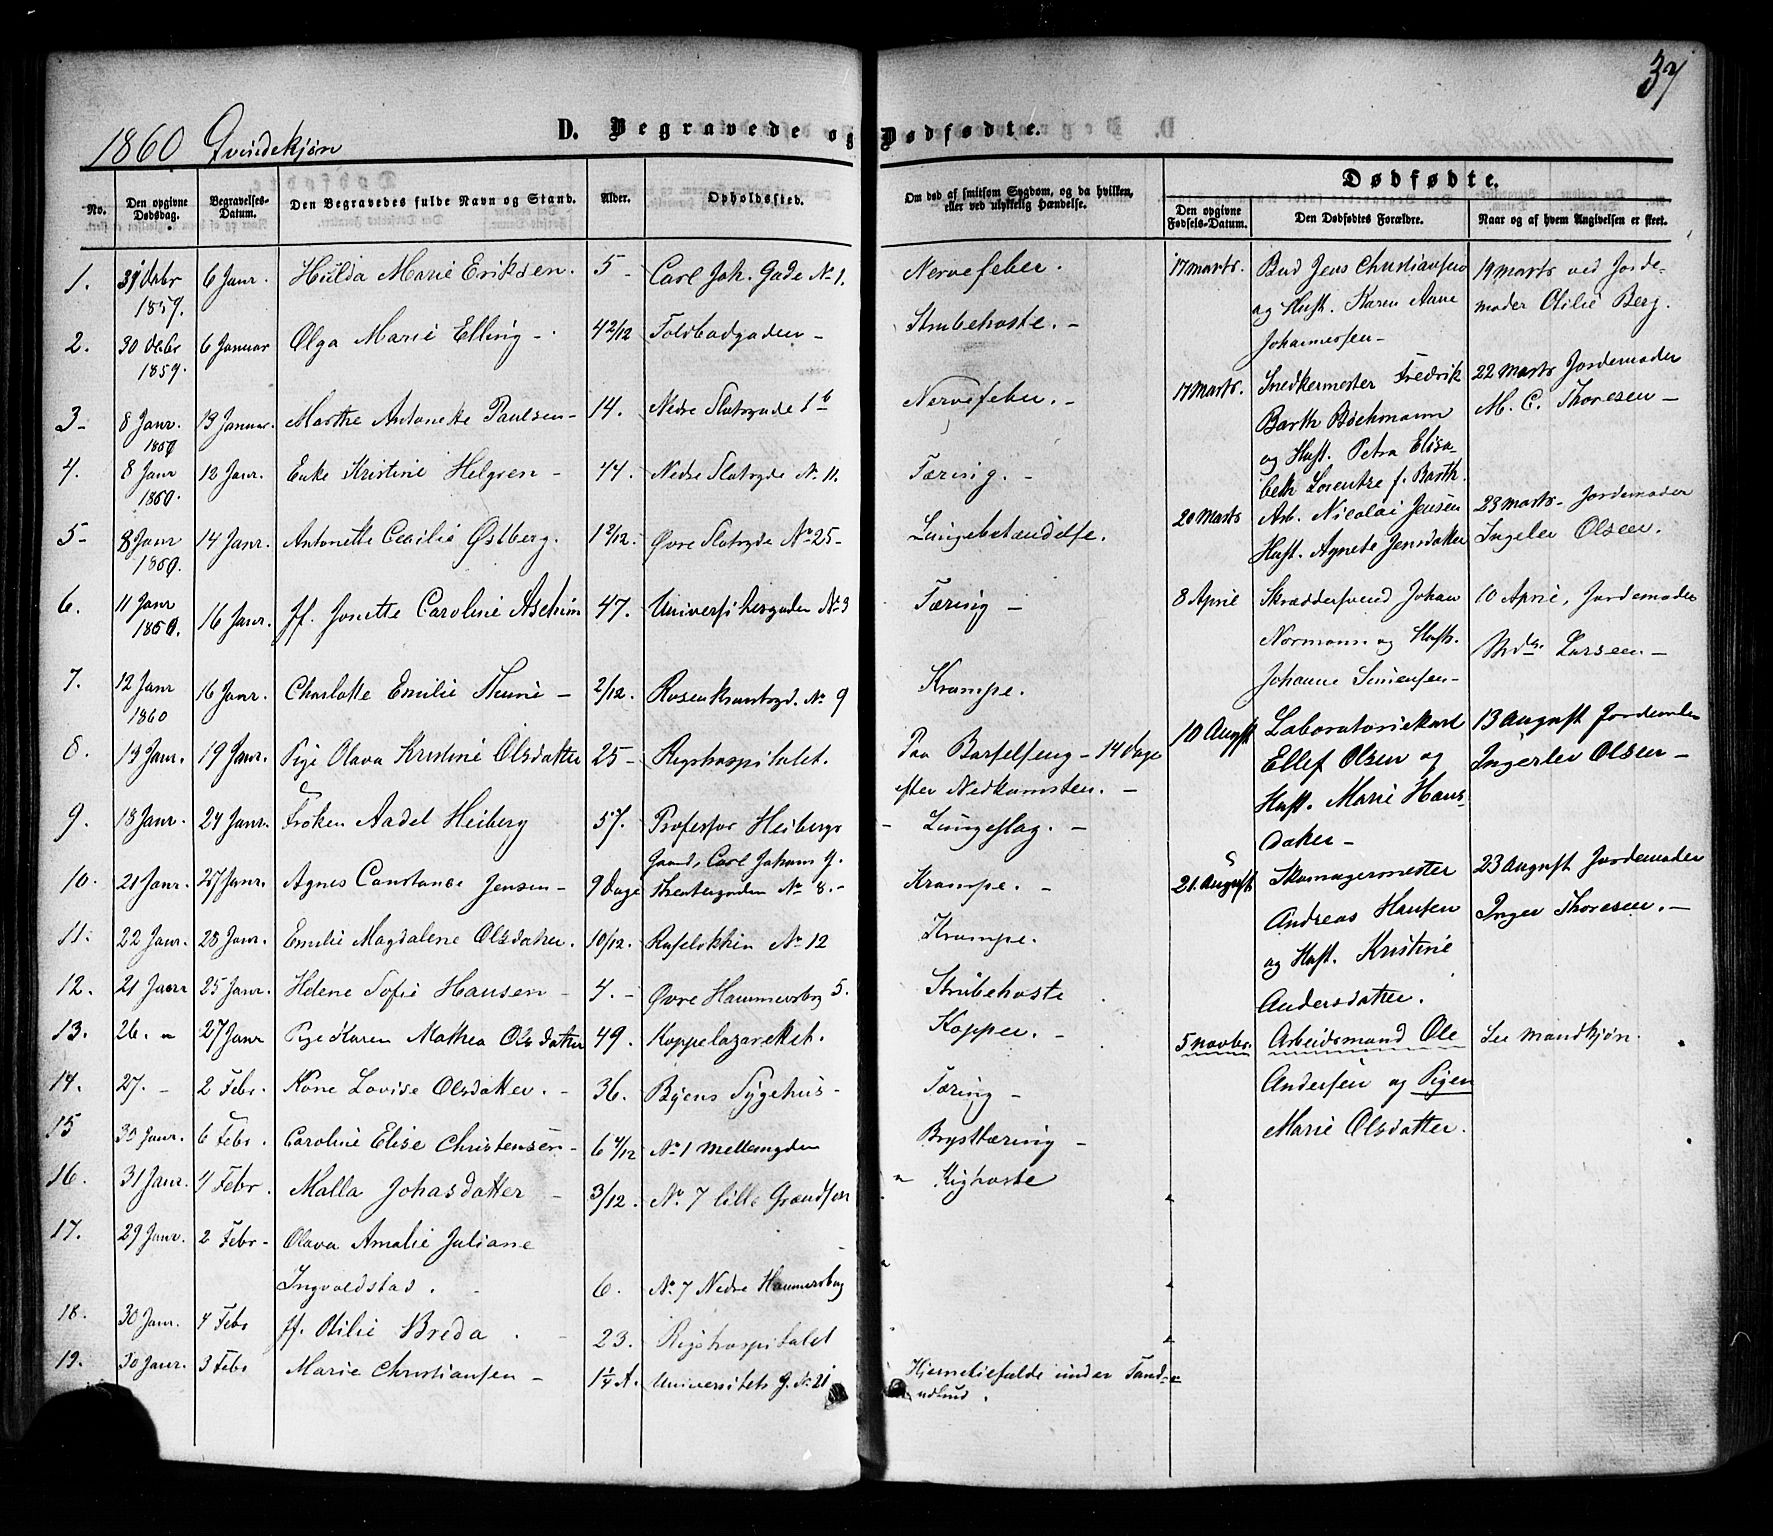 37
1860 Qvindekjøn
D. Begravede og Dødfødte.
No. Den opgivne Dødsdag. Begravelses-Datum. Den Begravedes fulde Navn og Stand. Alder. Opholdssted. Om død af smitsom Sygdom, og da hvilken, eller ved ulykkelig Hændelse.
Dødfødte.
Den opgivne Fødsels-Datum. Den Dødfødtes Forældre. Naar og af hvem Angivelsen er skeet.
1. 31 Debr 1859. 6 Janr. Hulda Marie Eriksen. 5 - Carl Joh. Gade No 1. Nervefeber.
2. 30 Debr 1859. 6 Januar Olga Marie Elling - 4 2/12 Toldbodgaden - Strubehoste. -
3 - 8 Janr. 1860 13 Januar. Marthe Antonette Paulsen - 14. Nedre Slotsgade 1 b Nervefeber. -
4. 8 Janr 1860. 12 Janr. Enke Kristine Helgren - 44. Nedre Slotsgde No 11. Tæring. -
5 - 8 Janr 1860. 14 Janr. Antonette Cecilie Østberg. 1 2/12. Øvre Slotsgde No 25 - Lungebetændelse.
6. 11 Janr 1860. 16 Janr. Jf. Jonette Caroline Aseheim 47. Universitetsgaden No 3 Tæring -
7. 12 Janr 1860 16 Janr. Charlotte Emilie Thune - 2/12. Rosenkrantzgd. No 9 Krampe.
8. 13 Janr. 19 Janr. Pige Olava Kristine Olsdatter 25 - Rigshospitalet. Paa Barselseng - 14 dage
efter Nedkomsten. -
9. 18 Janr. 24 Janr. Frøken Aadel Heiberg 57. Professor Heibergs - Lungeslag. -
Gaard, Carl Johans G.
10. 21 Janr. 27 Janr. Agnes Constance Jensen - 9 Dage Theatergaden No 8. - Krampe. -
11. 22 Janr. 28 Janr. Emilie Magdalene Olsdatter. 10/12. Rufeløkken No 12 Krampe.
12. 21 Janr 25 Janr. Helene Sofie Hansen - 4. - Øvre Hammersbg 5. Strubehoste
13. 26. " 27 Janr Pige Karen Mathea Olsdatter 49. Koppelazarethet. Kopper. -
14. 27. - 2 Febr. Kone Lovise Olsdatter. - 36. Byens Sygehus - Tæring -
15 30 Janr. 6 Febr. Caroline Elise Christensen - 6 4/12 No 1 Mellemgden Brysttæring -
16. 31 Janr. 4 Febr. Malla Johasdatter - 3/12. No. 7 lille Grændsen " Kighoste
17. 29 Janr. 2 Febr - Olava Amalie Juliane
Ingvoldstad. 6. No. 7 Nedre Hammersbog
18. 30 Janr. 4 Febr Jf. Otilie Breda. - 23. Rigshospitalet
19. 30 Janr. 3 Febr Marie Christiansen - 1 1/4 A. Universitets G. No 21 Hjernetilfælde under Tand-
udbrud.
17 Marts. Bud Jens Christiansen 19 Marts ved Jorde-
og Hust. Karen Aane moder Otilie Berg.
Johannessen -
17 Marts. Snedkermester Fredrik 22 Marts Jordemoder
Barth Bochmann M. C. Thoresen -
og Hust. Petra Elisa-
beth Lorentze f. Barth.
20 Marts Arb. Nicolai Jensen 23 Marts - Jordemoder
Hust. Agnete Jensdatter Ingeler Olsen.
8 April Skræddersvend Johan 10 April, Jordemoder
Normann og Hust. Mde. Larsen -
Johanne Simensen -
10 August Laboratoriekarl 13 August Jordemoder
Ellef Olsen og Ingerlev Olsen -
Hust. Marie Hans-
datter -
21. August Skomagermester 23 August Jordemoder
Andreas Hansen Inger Thoresen. -
og Hust. Kristine
Andersdatter.
5 Novbr. Arbeidsmand Ole See Mandkjøn.
Andersen og Pigen
Marie Olsdatter.